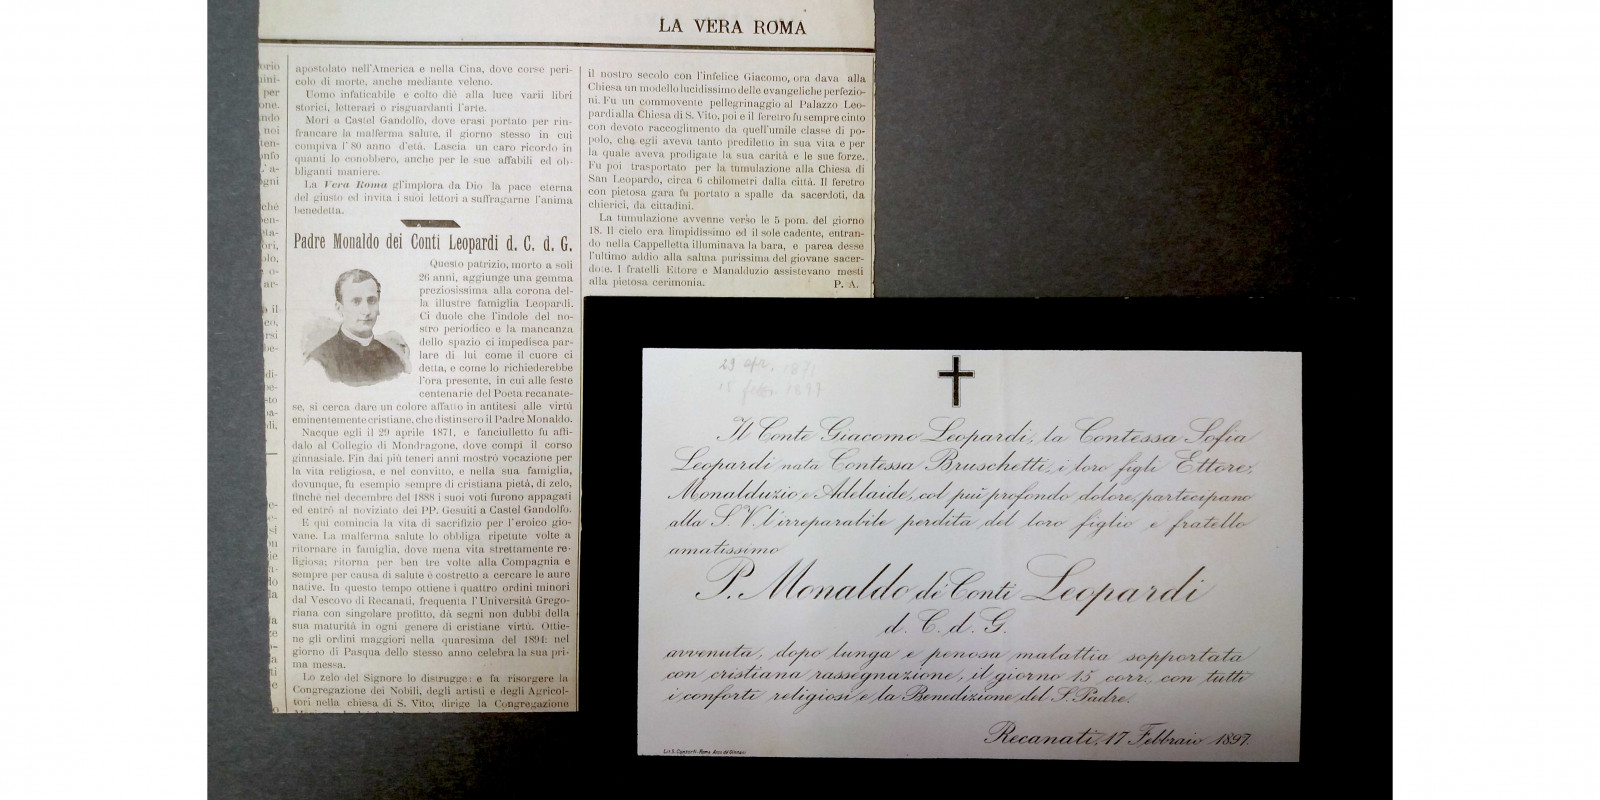 LA VERA ROMA
apostolato nell'America e nella Cina, dove corse peri-
colo di morte, anche mediante veleno.
Uomo infaticabile e colto diè alla luce varii libri
storici, letterari o risguardanti l'arte.
Morì a Castel Gandolfo, dove erasi portato per rin-
francare la malferma salute, il giorno stesso in cui
compiva l'80 anno d'età. Lascia un caro ricordo in
quanti lo conobbero, anche per le sue affabili ed ob-
bliganti maniere.
La Vera Roma gl'implora da Dio la pace eterna
del giusto ed invita i suoi lettori a suffragarne l'anima
benedetta.
Padre Monaldo dei Conti Leopardi d. C. d. G.
Questo patrizio, morto a soli
26 anni, aggiunge una gemma
preziosissima alla corona del-
la illustre famiglia Leopardi.
Ci duole che l'indole del no-
stro periodico e la mancanza
dello spazio ci impedisca par-
lare di lui come il cuore ci
detta, e come lo richiederebbe
l'ora presente, in cui alle feste
centenarie del Poeta recanate-
se, si cerca dare un colore affatto in antitesi alle virtù
eminentemente cristiane, che distinsero il Padre Monaldo.
Nacque egli il 29 aprile 1871, e fanciulletto fu affi-
dato al Collegio di Mondragone, dove compì il corso
ginnasiale. Fin dai più teneri anni mostrò vocazione per
la vita religiosa, e nel convitto, e nella sua famiglia,
dovunque, fu esempio sempre di cristiana pietà, di zelo,
finchè nel decembre del 1888 i suoi voti furono appagati
ed entrò al noviziato dei PP. Gesuiti a Castel Gandolfo.
E qui comincia la vita di sacrifizio per l'eroico gio-
vane. La malferma salute lo obbliga ripetute volte a
ritornare in famiglia, dove mena vita strettamente re-
ligiosa; ritorna per ben tre volte alla Compagnia e
sempre per causa di salute è costretto a cercare le aure
native. In questo tempo ottiene i quattro ordini minori
dal Vescovo di Recanati, frequenta l'Università Grego-
riana con singolare profitto, dà segni non dubbi della
sua maturità in ogni genere di cristiane virtù. Ottie-
ne gli ordini maggiori nella quaresima del 1894: nel
giorno di Pasqua dello stesso anno celebra la sua pri-
ma messa.
Lo zelo del Signore lo distrugge: e fa risorgere la
Congregazione dei Nobili, degli artisti e degli Agricol-
tori nella chiesa di S. Vito; dirige la Congregazione
il nostro secolo con l'infelice Giacomo, ora dava alla
Chiesa un modello lucidissimo delle evangeliche perfezio-
ni. Fu un commovente pellegrinaggio al Palazzo Leo-
pardi alla Chiesa di S. Vito, poi e il feretro fu sempre cinto
con devoto raccoglimento da quell'umile classe di po-
polo, che egli aveva tanto prediletto in sua vita e per
la quale aveva prodigate la sua carità e le sue forze.
Fu poi trasportato per la tumulazione alla Chiesa di
San Leopardo, circa 6 chilometri dalla città. Il feretro
con pietosa gara fu portato a spalle da sacerdoti, da
chierici, da cittadini.
La tumulazione avvenne verso le 5 pom. del giorno
18. Il cielo era limpidissimo ed il sole cadente, entran-
do nella Cappelletta illuminava la bara, e parea desse
l'ultimo addio alla salma purissima del giovane sacer-
dote. I fratelli Ettore e Manalduzio assistevano mesti
alla pietosa cerimonia. P. A.
29 apr. 1871
15 febr. 1897
Il Conte Giacomo Leopardi, la Contessa Sofia
Leopardi nata Contessa Bruschetti, i loro figli Ettore,
Monalduzio e Adelaide, col più profondo dolore, partecipano
alla S. V. l'irreparabile perdita del loro figlio e fratello
amatissimo
P. Monaldo de' Conti Leopardi
d. C. d. G.
avvenuta, dopo lunga e penosa malattia sopportata
con cristiana rassegnazione, il giorno 15 corr., con tutti
i conforti religiosi e la Benedizione del S. Padre.
Recanati, 17 Febbraio 1897.